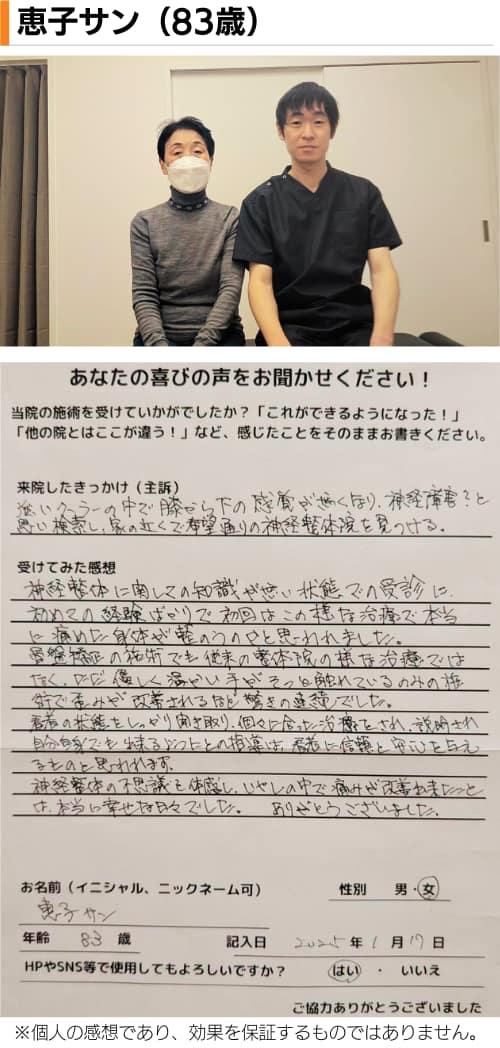 恵子サン（83歳）
あなたの喜びの声をお聞かせください！
当院の施術を受けていかがでしたか？「これができるようになった！」
「他の院とはここが違う！」など、感じたことをそのままお書きください。
来院したきっかけ（主訴）
強いクーラーの中で膝から下の感覚が無くなり、神経障害？と
思い検索し、家の近くで希望通りの神経整体院を見つける。
受けてみた感想
神経整体に関しての知識が無い状態での受診に、
初めての経験ばかりで初回はこの様な治療で本当
に痛めた身体が軽くなるのかと思われました。
骨盤矯正の施術でも従来の整体院の様な治療では
なく、ただ優しく温かい手がそっと触れているのみの施
術で歪みが改善されるなど驚きの連続でした。
患者の状態をしっかり聞き取り、個々に合った治療をされ、説明され
自分自身でも出来る
ことの指導は、患者に信頼と安心を与え
るものと思われます。
神経整体の不思議を体感し、いやしの中で痛みが改善されたこと
は、本当に幸せな日々でした。 ありがとうございました。
お名前（イニシャル、ニックネーム可） 性別 男・女
恵子サン
年齢 83 歳 記入日 2025 年 1 月 17 日
HPやSNS等で使用してもよろしいですか？ はい ・ いいえ
ご協力ありがとうございました
※個人の感想であり、効果を保証するものではありません。